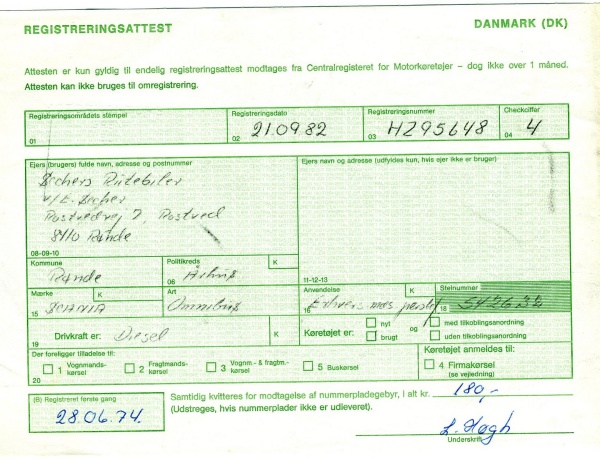 REGISTRERINGSATTEST
DANMARK (DK)
Attesten er kun gyldig til endelig registreringsattest modtages fra Centralregisteret for Motorkøretøjer – dog ikke over 1 måned.
Attesten kan ikke bruges til omregistrering.
Registreringsområdets stempel
01
Registreringsdato
02 21.09.82
Registreringsnummer
03 HZ95648
Checkciffer
04 4
Ejers (brugers) fulde navn, adresse og postnummer
Rutebiler
v/E.
7,
8410 Rønde
08-09-10
Ejers navn og adresse (udfyldes kun, hvis ejer ikke er bruger)
11-12-13
Kommune
Rønde
Politikreds
K
06 Århus
Mærke
K
15 SCANIA
Art
Omnibus
Anvendelse
K
16 Erhvervsmæs
Stelnummer
18 542632
19 Drivkraft er: Diesel
K
Køretøjet er:
nyt
brugt
og
med tilkoblingsanordning
uden tilkoblingsanordning
Der foreligger tilladelse til:
20
1 Vognmands-kørsel
2 Fragtmands-kørsel
3 Vognm.- & fragtm.-kørsel
5 Buskørsel
Køretøjet anmeldes til:
4 Firmakørsel
(se vejledning)
(B) Registreret første gang
28.06.74.
Samtidig kvitteres for modtagelse af nummerpladegebyr, i alt kr. 180,-
(Udstreges, hvis nummerplader ikke er udleveret).
L. Høgh
Underskrift